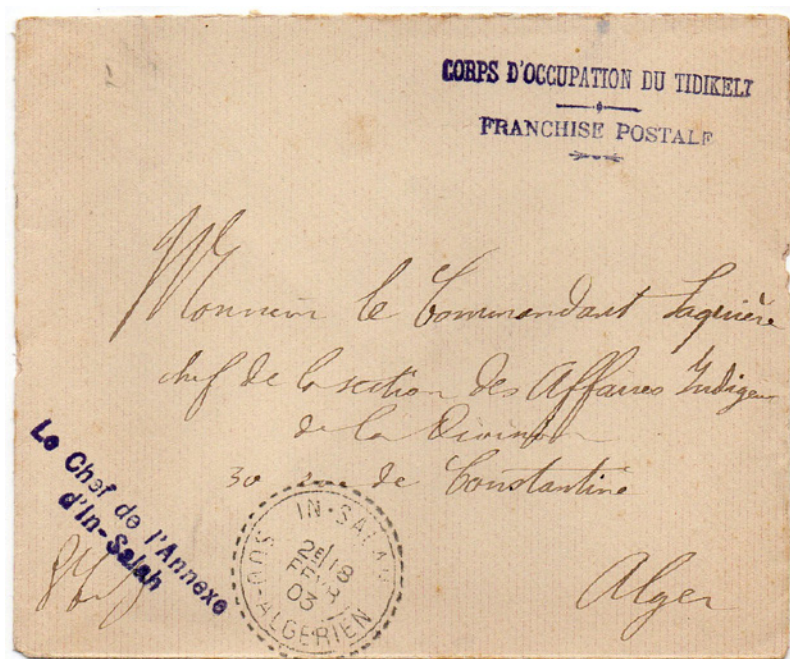 CORPS D'OCCUPATION DU TIDIKELT
FRANCHISE POSTALE
Monsieur le Commandant Laquière
chef de la section des Affaires Indigènes
de la Division
30 rue de Constantine
Alger
Le Chef de l'Annexe
d'In-Salah
IN-SALAH
2E/18
FEVR
03
SUD-ALGERIEN